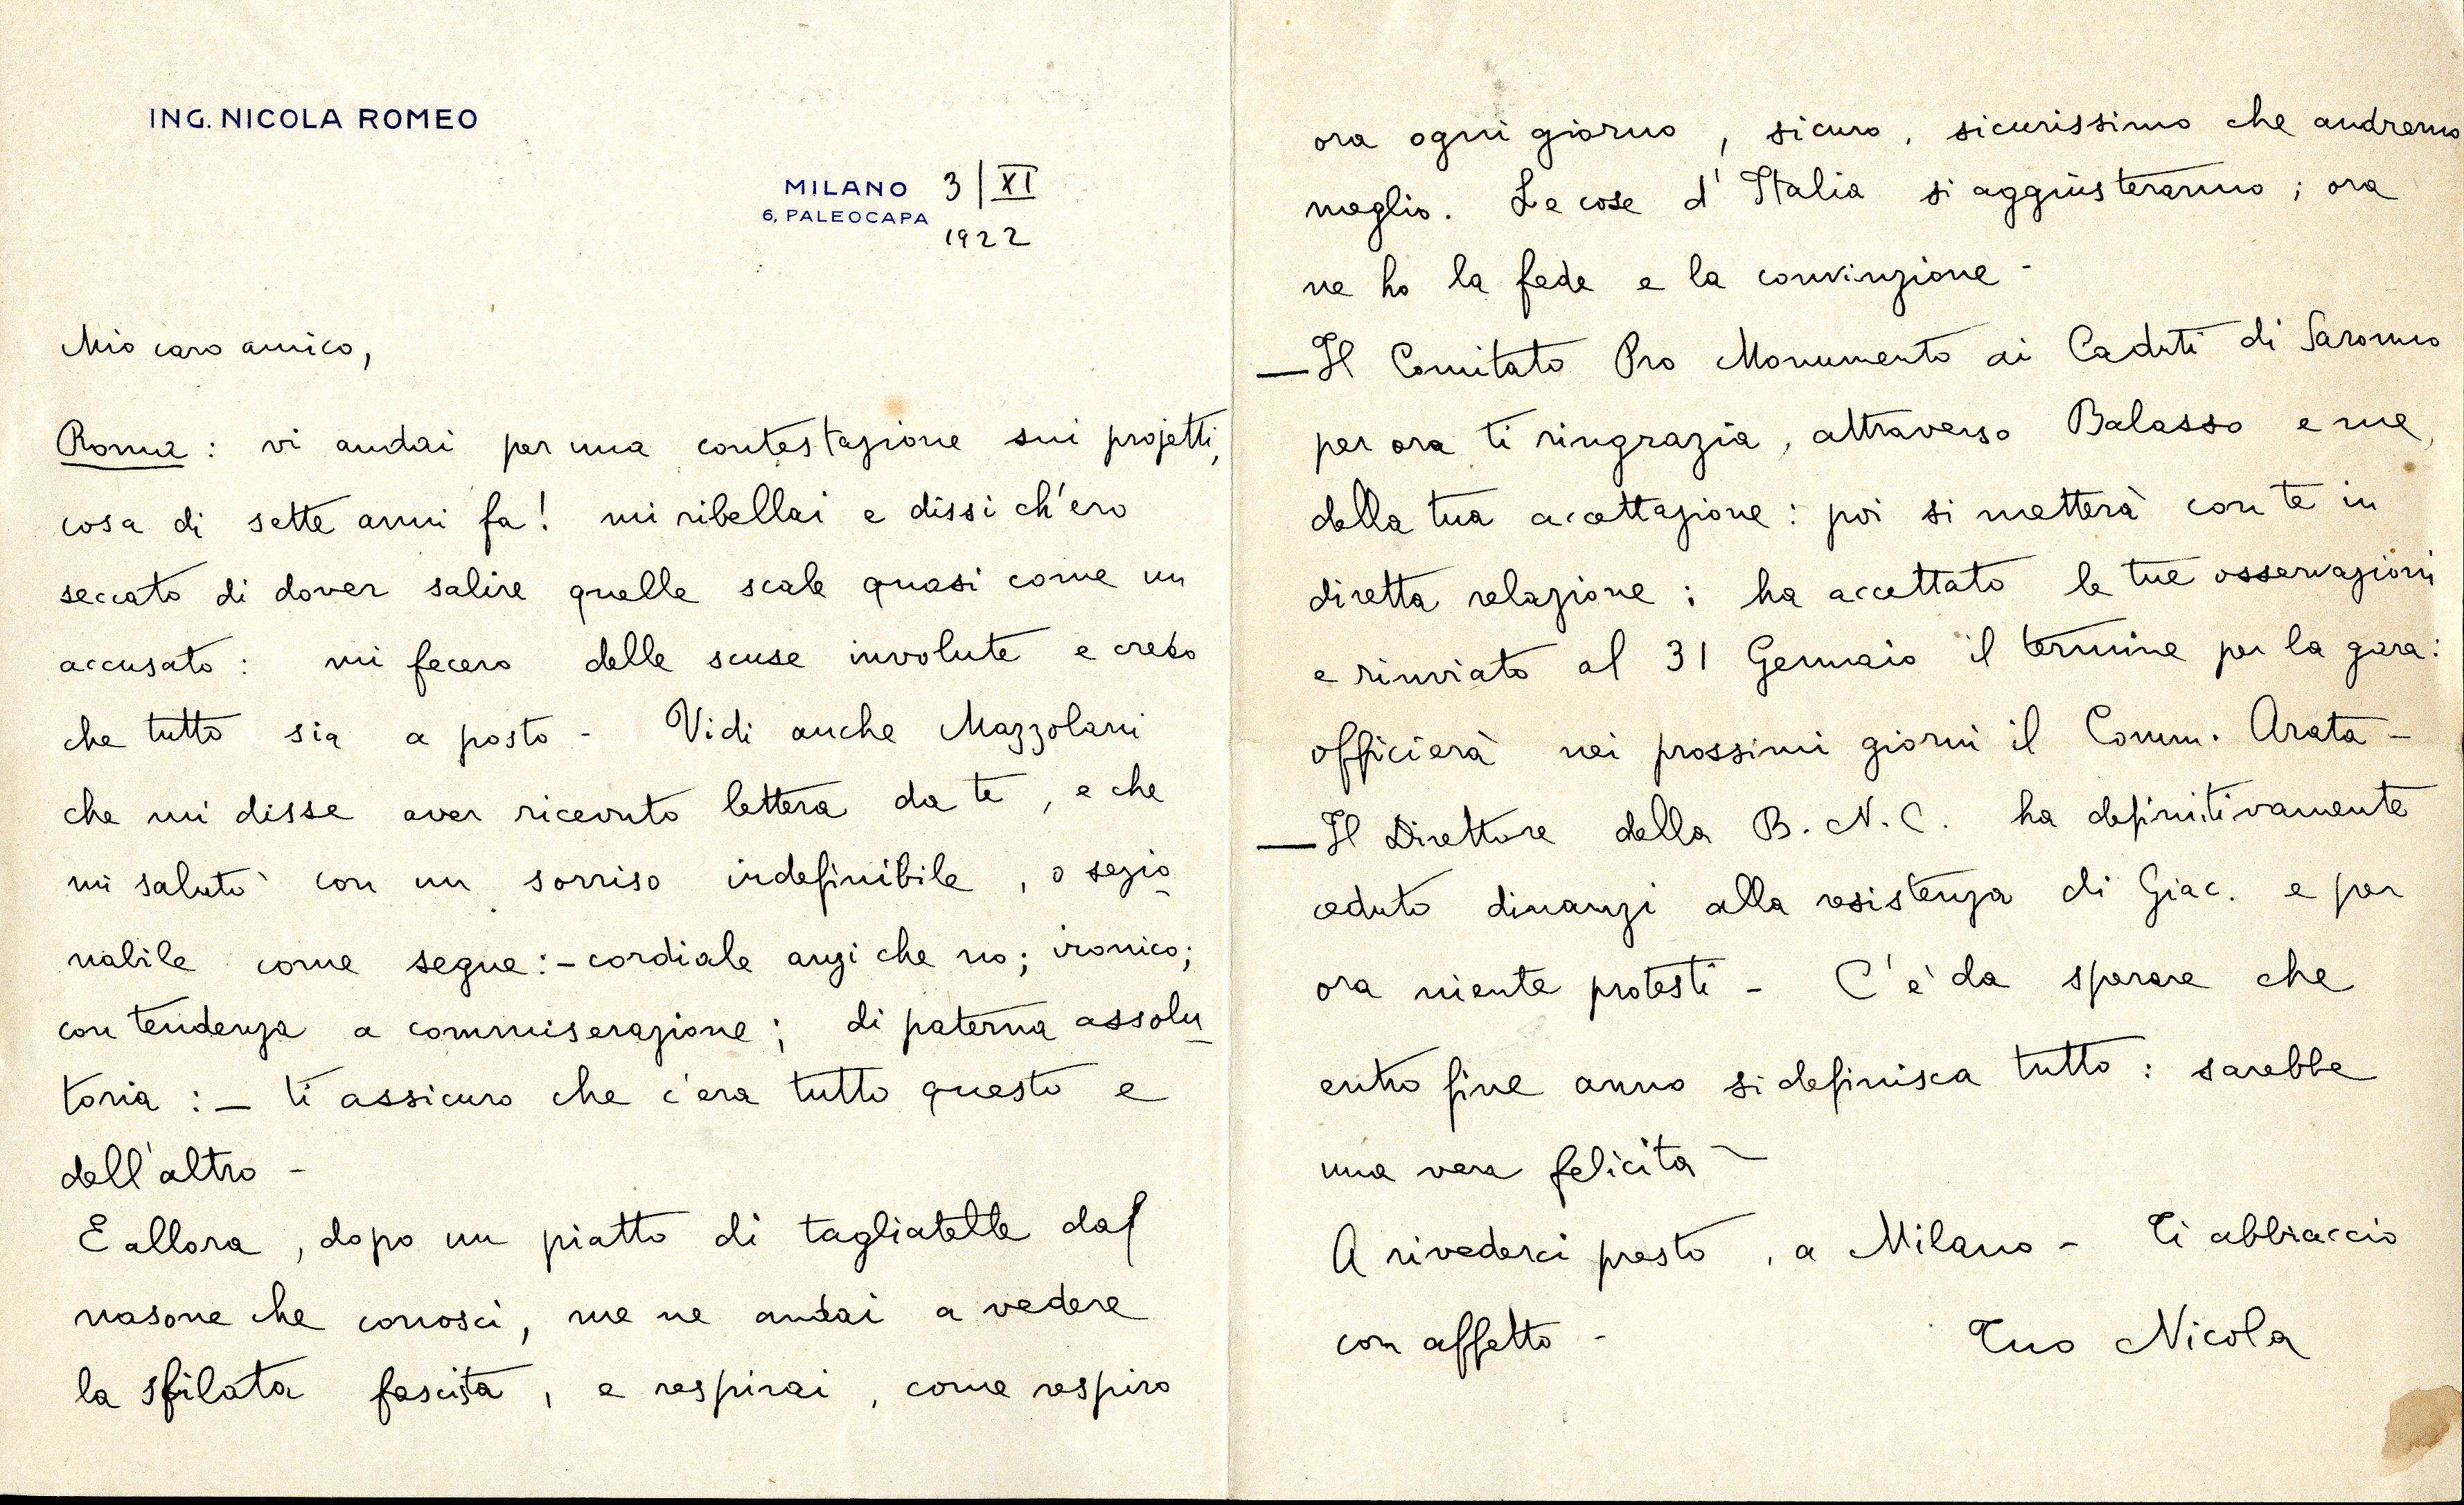 ING. NICOLA ROMEO
MILANO 3/XI
6, PALEOCAPA
1922
Mio caro amico,
Roma : vi andai per una contestazione sui projetti,
cosa di sette anni fa! mi ribellai e dissi ch'ero
seccato di dover salire quelle scale quasi come un
accusato : mi fecero delle scuse involute e credo
che tutto sia a posto - Vidi anche Mazzolani
che mi disse aver ricevuto lettera da te, e che
mi salutò con un sorriso indefinibile, o sezio
nabile come segue :- cordiale anzi che no; ironico;
con tendenza a commiserazione; di paterna assolu
toria :- ti assicuro che c'era tutto questo e
dell'altro -
E allora, dopo un piatto di tagliatelle dal
nasone che conosci, me ne andai a vedere
la sfilata fascista, e respirai, come respiro
ora ogni giorno, sicuro, sicurissimo che andremo
meglio. Le cose d'Italia si aggiusteranno; ora
ne ho la fede e la convinzione -
- Il Comitato Pro Monumento ai Caduti di Saronno
per ora ti ringrazia, attraverso Balasso e me,
della tua accettazione : poi si metterà con te in
diretta relazione; ha accettato le tue osservazioni
e rinviato al 31 Gennaio il termine per la gara :
officierà nei prossimi giorni il Comm. Arata -
- Il Direttore della B. N. C. ha definitivamente
ceduto dinanzi alla resistenza di Giac. e per
ora niente protesti - C'è da sperare che
entro fine anno si definisca tutto : sarebbe
una vera felicità -
A rivederci presto, a Milano - Ti abbraccio
con affetto - Tuo Nicola